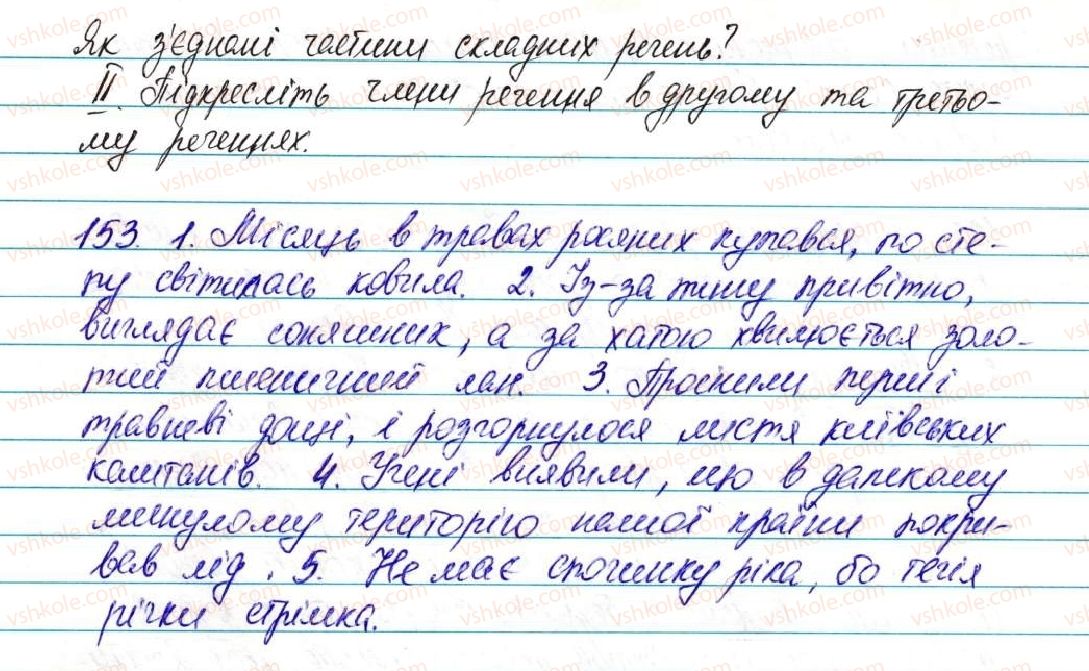 Як з'єднані частини складних речень?
II. Підкресліть члени речення в другому та третьо-
му реченнях.
153. 1. Місяць в травах росяних купався, по сте-
пу світилась ковила. 2. Із-за тину привітно,
виглядає соняшник, а за хатою хвилюється золо-
тий пшеничний лан. 3. Проспили перші
травневі дощі, і розгорнулося листя київських
каштанів. 4. Учені виявили, що в далекому
минулому територію нашої країни покри-
вав лід. 5. Не має спочинку ріка, бо течія
річки стрімка.